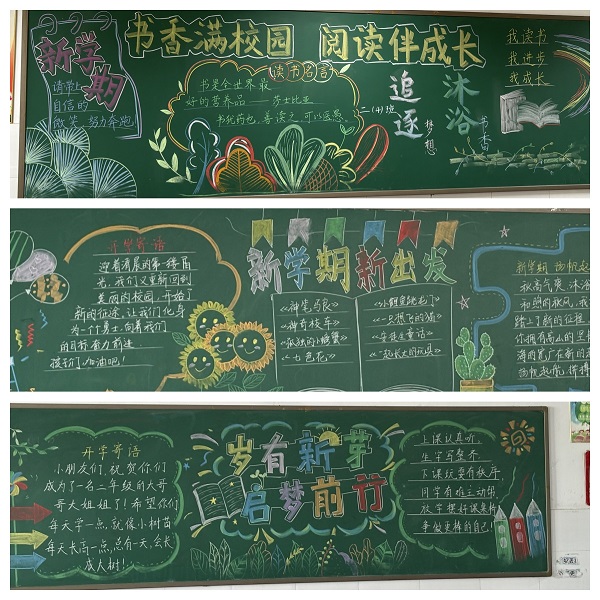 书香满校园 阅读伴成长
新学期
请带上
自信的
微笑 努力奔跑
读书名言
书是全世界最
好的营养品——莎士比亚
书犹药也,善读之,可以医愚
二(4)班
追逐
梦想
沐浴
书香
我读书
我进步
我成长
开学寄语
迎着清晨的第一缕阳
光,我们又重新回到
美丽的校园,开始了
新的征途,让我们化身
为一个勇士,向着我们
的目标奋力前进
孩子们,加油吧!
新学期新出发
《神笔马良》
《神奇校车》
《孤独的小螃蟹》
《七色花》
《小鲤鱼跳龙门》
《一只想飞的猫》
《一起长大的玩具》
新学期 扬帆起
秋高气爽 沐浴
和煦的秋风,我
踏上了新的征程
你拥有高山的坚
海的宽广在新的
扬帆起航
开学寄语
小朋友们,祝贺你们
成为了一名二年级的大哥
哥大姐姐了!希望你们
每天学一点,就像小树苗
每天长高一点,总有一天,会长
成大树!
岁有新芽
启梦前行
上课认真听,
生字写整齐,
下课玩耍有秩序
同学有难主动帮
放学想好课桌椅
争做更棒的自己!